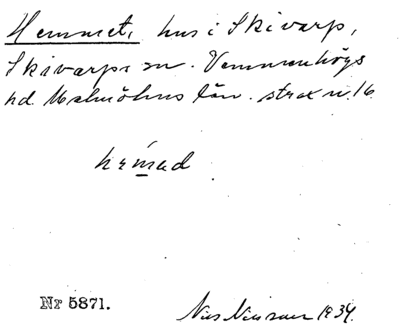 Hemmet, hus i Skivarp,
Skivarps sn. Vemmenhögs
hd. Malmöhus län. strax n. 16
Nr 5871. Nils Nilsson 1934.